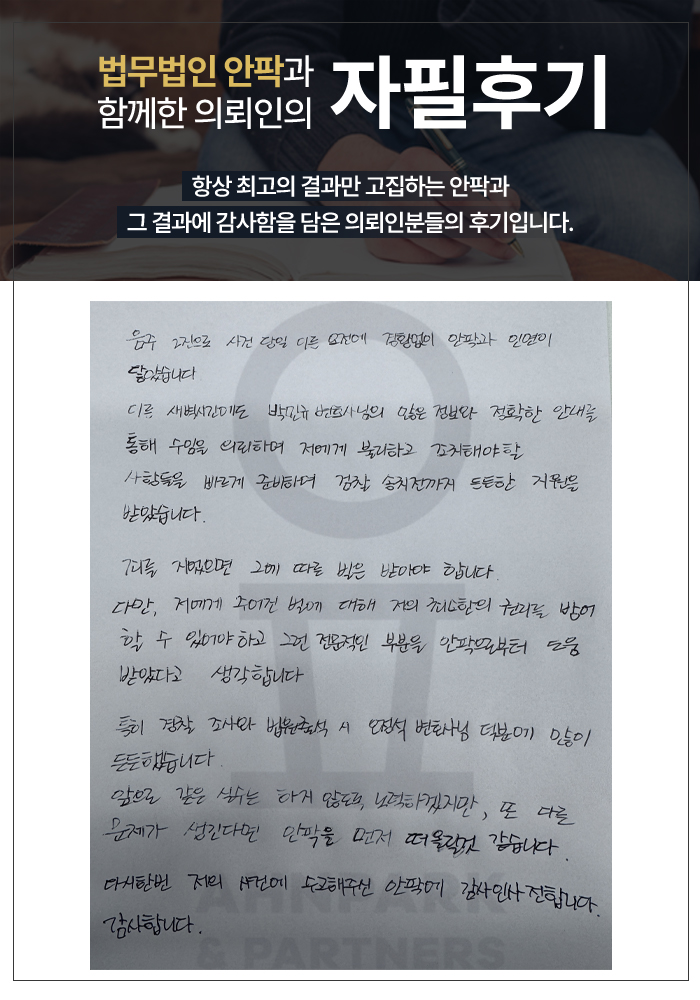 법무법인 안팍과
함께한 의뢰인의
자필후기
항상 최고의 결과만 고집하는 안팍과
그 결과에 감사함을 담은 의뢰인분들의 후기입니다.
음주 사건 당일 다른 경황없이 안팍과 인연이
닿았습니다
다른 새벽시간에도 박민규 변호사님의 많은 정보와 정확한 안내를
통해 수임을 의뢰하며 저에게 불리하고 조치해야 할
사항들을 바르게 준비하며 검찰 송치전까지 든든한 지원을
받았습니다.
죄를 지었으면 그에 따른 벌은 받아야 합니다
다만, 저에게 주어진 법에 대해 저의 최소한의 권리를 방어
할 수 있어야 하고 그런 전문적인 부분을 안팍으로부터 도움
받았다고 생각합니다
특히 경찰 조사와 법원출석 시 오정석 변호사님 덕분에 많이
든든했습니다.
앞으로 같은 실수는 하지 않도록 노력하겠지만, 또 다른
문제가 생긴다면 안팍을 먼저 떠올릴것 같습니다.
다시한번 저의 사건에 수고해주신 안팍에 감사인사 전합니다.
감사합니다.
AHNPARK
& PARTNERS